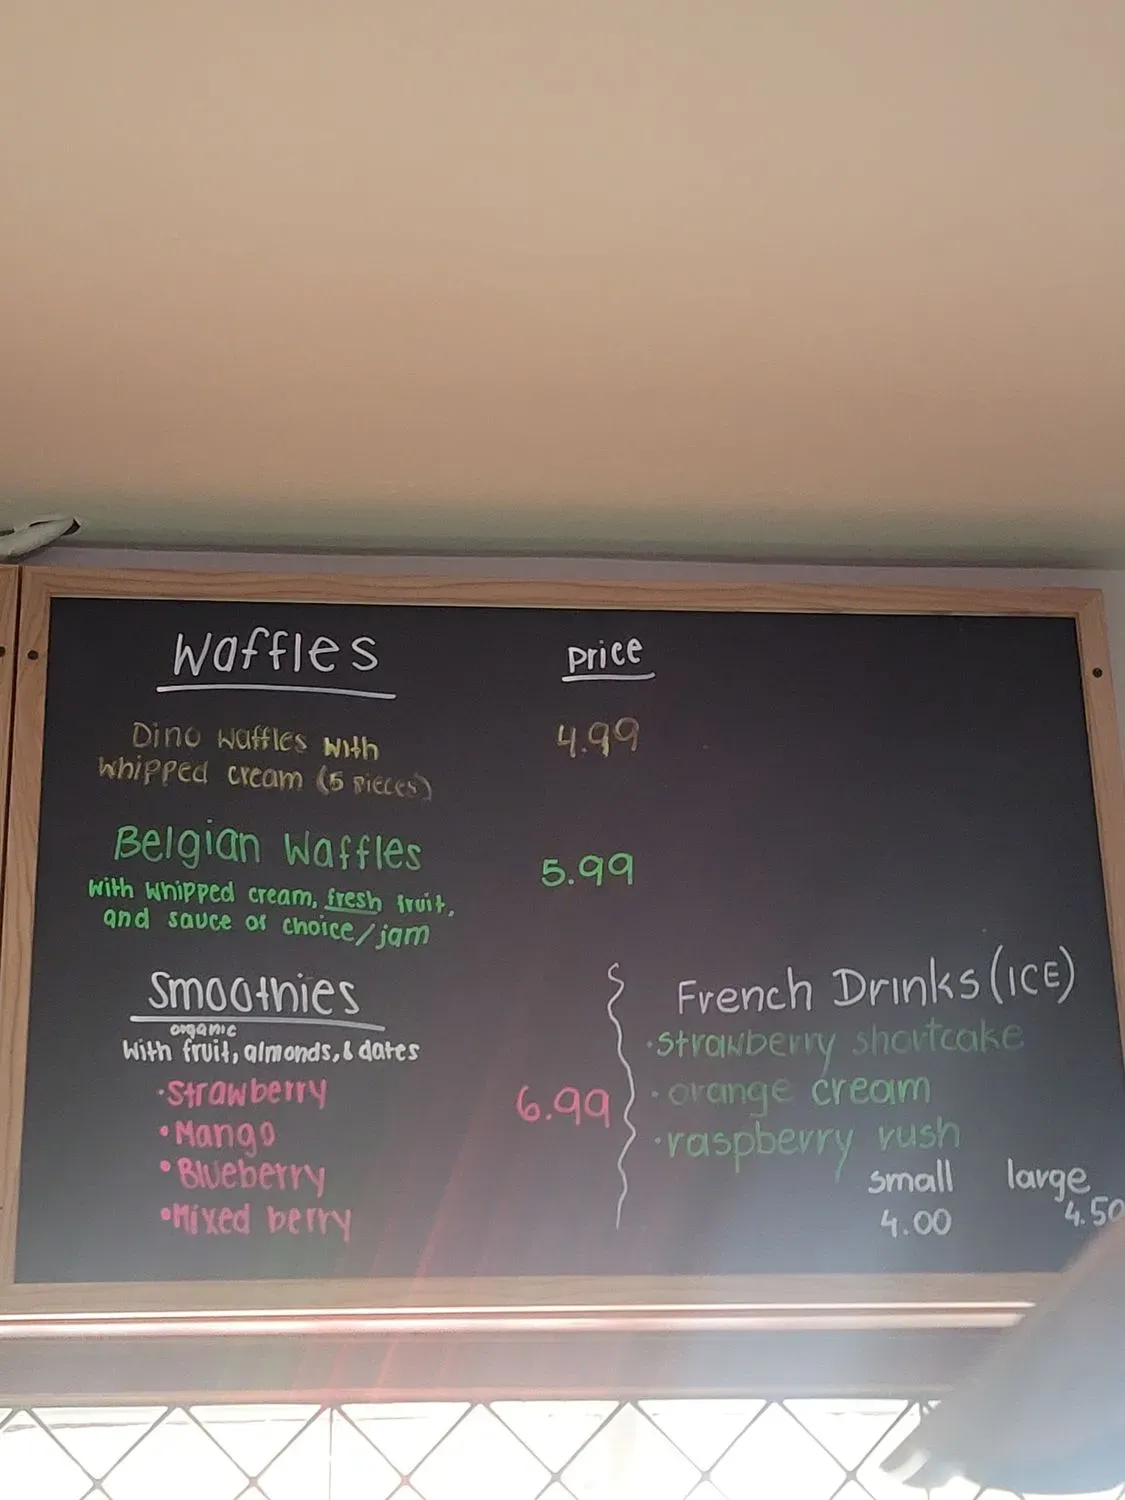 Waffles
Price
Dino waffles with
whipped cream (5 pieces)
4.99
Belgian Waffles
with whipped cream, fresh fruit,
and sauce of choice/jam
5.99
Smoothies
organic
with fruit, almonds, & dates
•Strawberry
•Mango
•Blueberry
•Mixed berry
6.99
French Drinks (ICE)
•strawberry shortcake
•orange cream
•raspberry rush
small large
4.00 4.50